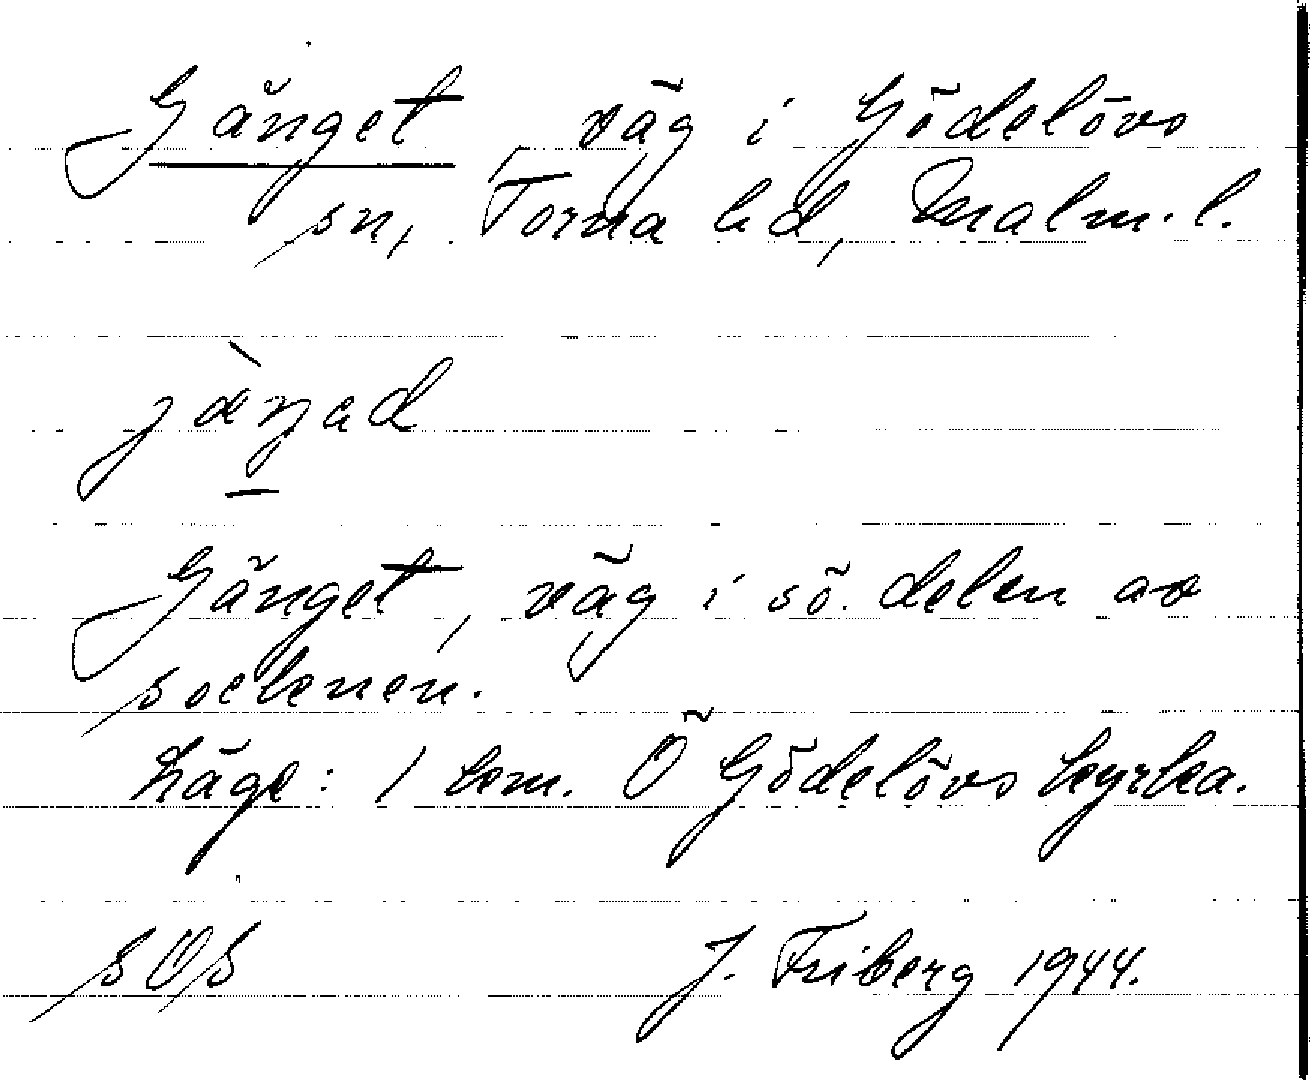 Gänget, väg i Gödelövs
sn, Torna hd, Malm. l.
jàŋad
Gänget, väg i sö. delen av
socknen.
Läge: 1 km. Ö Gödelövs kyrka.
SOS J. Friberg 1944.